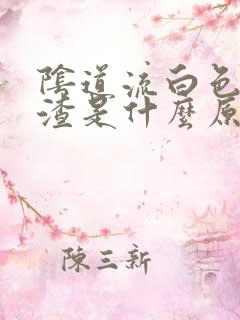 陰道流白色
渣是什麼原
陳三新